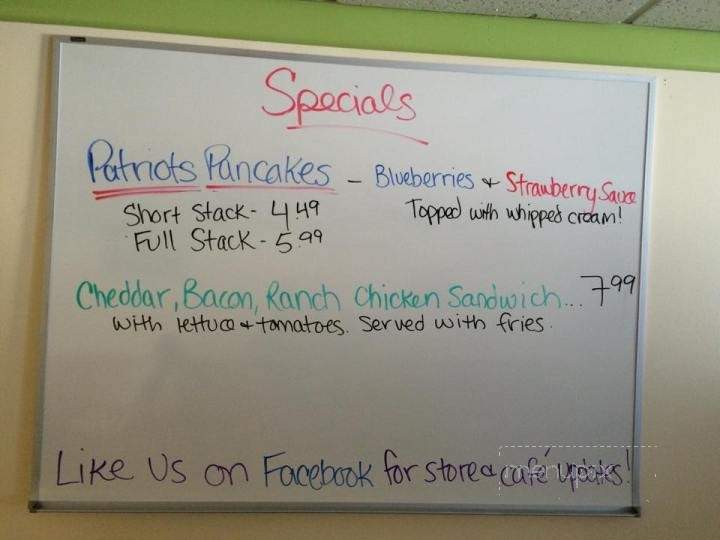 Specials
Patriots Pancakes - Blueberries + Strawberry Sauce
Short Stack - 4.49 Topped with whipped cream!
Full Stack - 5.99
Cheddar, Bacon, Ranch Chicken Sandwich... 7.99
with lettuce + tomatoes. Served with fries.
Like Us on Facebook for store & café updates!